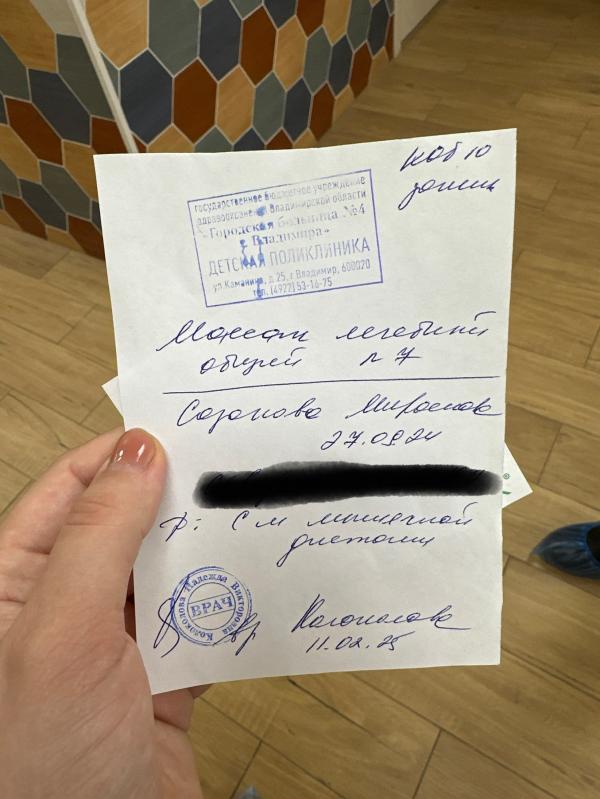 каб 10
государственное бюджетное учреждение
здравоохранения Владимирской области
"Городская больница №4
г. Владимира"
ДЕТСКАЯ ПОЛИКЛИНИКА
ул. Каманина, д. 25, г. Владимир, 600020
тел. (4922) 53-16-75
Массаж лечебный
общий n 7
Сазонова Мирослава
27.09.24
D: С-м мышечной
дистонии
Колоколова Надежда Викторовна
ВРАЧ
Вр Колоколова
11.02.25